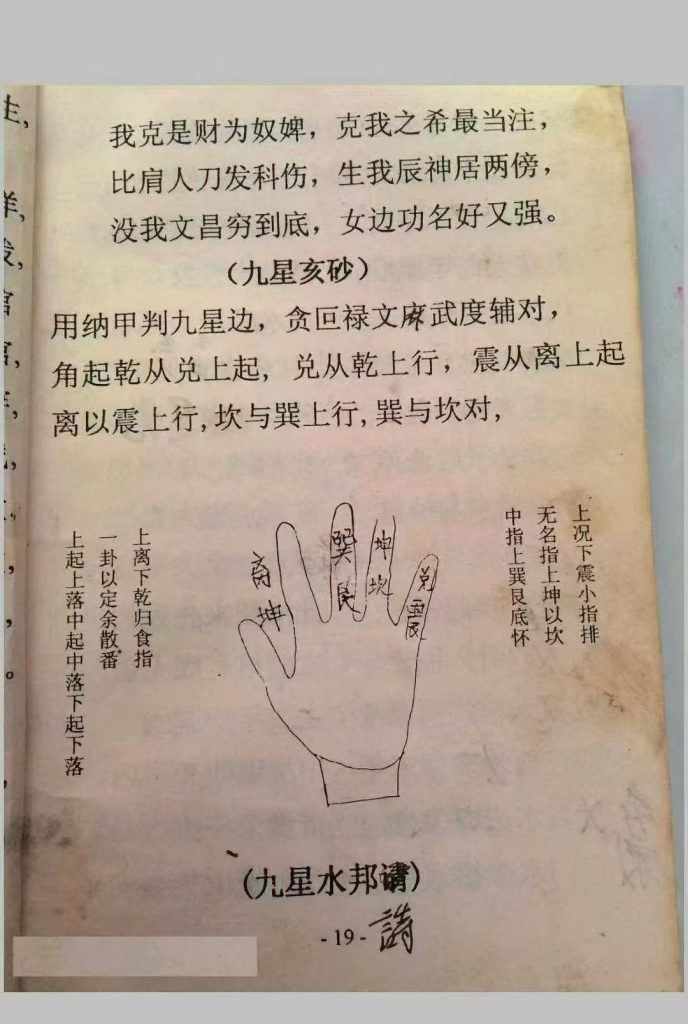 我克是财为奴婢，克我之希最当注，
比肩人刀发科伤，生我辰神居两傍，
没我文昌穷到底，女边功名好又强。
（九星亥砂）
用纳甲判九星边，贪叵禄文麻武度辅对，
角起乾从兑上起，兑从乾上行，震从离上起
离以震上行，坎与巽上行，巽与坎对，
上况下震小指排
无名指上坤以坎
中指上巽艮底怀
上离下乾归食指
一卦以定余散番
上起上落中起中落下起下落
离坤
巽艮
坤坎
兑震
（九星水邦请）
- 19 -
請